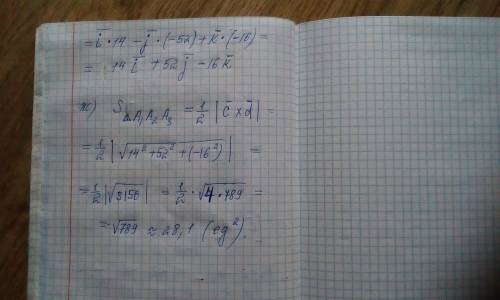 = i̅ · 14 - j̅ · (-52) + k̅ · (-16) =
= 14 i̅ + 52 j̅ - 16 k̅
ж) S△A₁A₂A₃ = 1/2 | c̅ × d̅ | =
= 1/2 | √14² + 52² + (-16²) | =
= 1/2 | √3156 | = 1/2 · √4 · 789 =
= √789 ≈ 28,1 (eg²).